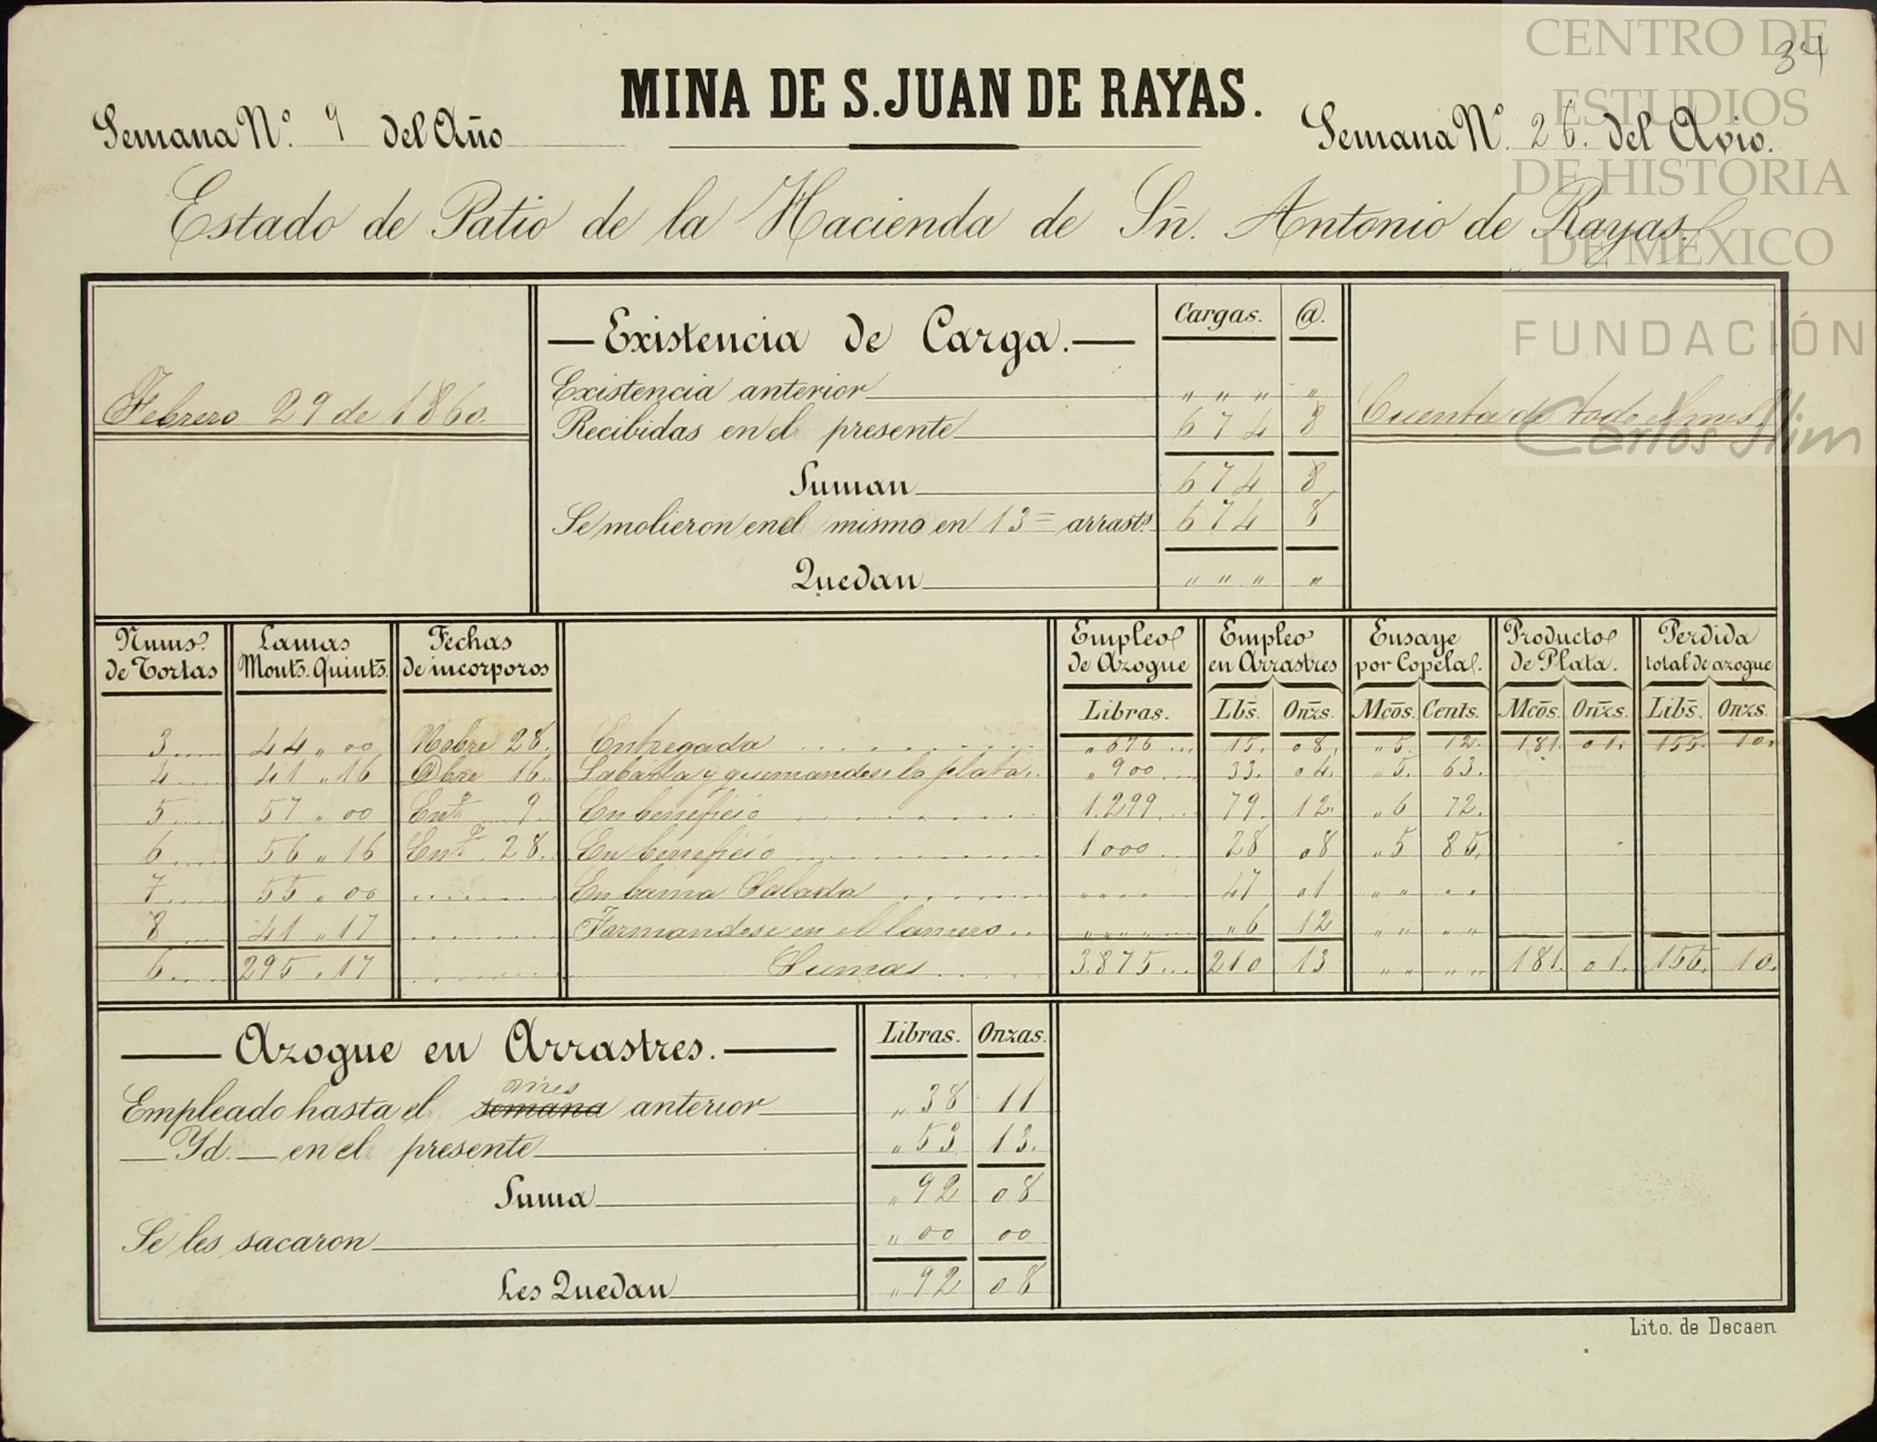 CENTRO DE
ESTUDIOS
DE HISTORIA
DE MÉXICO
FUNDACIÓN
Carlos Slim
34
MINA DE S. JUAN DE RAYAS.
Semana Nº. 9 del Año
Semana Nº. 26. del Avio.
Estado de Patio de la Hacienda de Sn̄. Antonio de Rayas.
Febrero 29 de 1860.
—Existencia de Carga.— Cargas. @.
Existencia anterior " " " "
Recibidas en el presente 674 8
Suman 674 8
Se molieron en el mismo en 13 = arrasts. 674 8
Quedan " " " "
Cuenta de todo el mes
Nums. de Tortas Lamas Monts. Quints. Fechas de incorporos Empleo de Azogue Empleo en Arrastres Ensaye por Copela. Producto de Plata. Perdida total de azogue
Libras. Lbs. Onzs. Mcos. Cents. Mcos. Onzs. Libs. Onzs.
3 44 " 00 Nobre 28. Entregada " 676 15. 08. " 5. 12. 181. 01. 155. 10.
4 41 " 16 Dbre 16. Labada y quemandose la plata " 900 33. 04. " 5. 63.
5 57 " 00 Enº 9. En beneficio 1.299 79. 12. " 6 72.
6 56 " 16 Enº 28. En beneficio 1000 28 08 " 5 85.
7 55 " 00 En lama Salada " " " " 47 01 " " " "
8 41 " 17 Formandose en el lamero " " " " " 6 12 " " " "
6 295 " 17 Sumas 3.875 210 13 " " " " 181. 01. 155. 10.
—Azogue en Arrastres.— Libras. Onzas.
mes
Empleado hasta el semana anterior " 38 11
—Yd.— en el presente " 53 13.
Suma " 92 08
Se les sacaron " 00 00
Les Quedan " 92 08
Lito. de Decaen